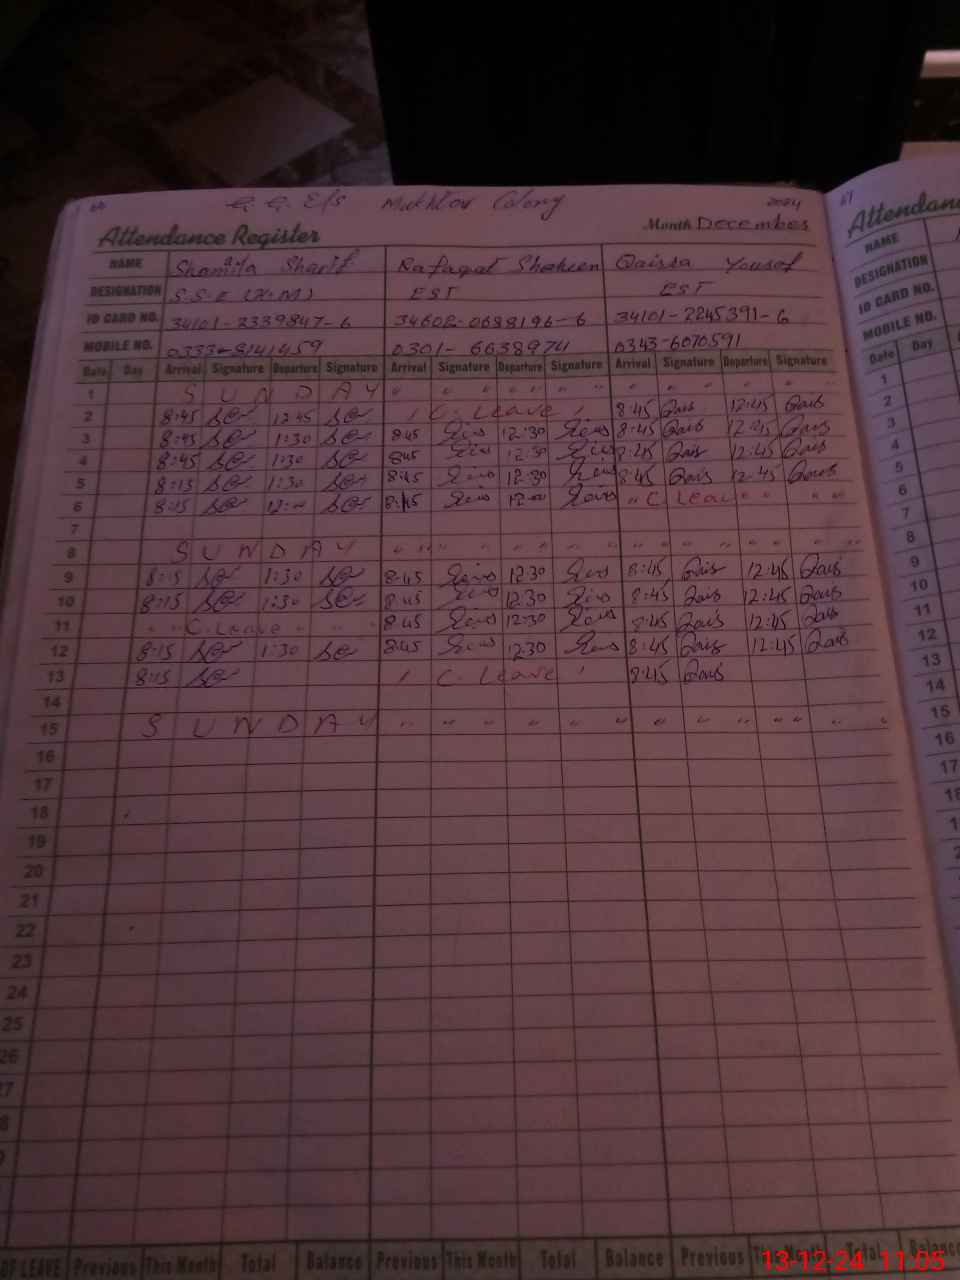 60 G.G. E/S Mukhtar Colony 2024
Attendance Register Month December
NAME Shamila Sharif Rafaqat Shaheen Qaissa Yousaf
DESIGNATION S.S.E (H.M) EST EST
ID CARD NO. 34101-2339847-6 34602-0688196-6 34101-2245391-6
MOBILE NO. 0333-8141459 0301-6638974 0343-6070591
Date Day Arrival Signature Departure Signature Arrival Signature Departure Signature Arrival Signature Departure Signature
1 SUNDAY " " " " " " " "
2 8:45 12:45 C. Leave 8:45 Qais 12:45 Qais
3 8:45 1:30 8:45 12:30 8:45 Qais 12:45 Qais
4 8:45 1:30 8:45 12:30 8:45 Qais 12:45 Qais
5 8:15 1:30 8:45 12:30 8:45 Qais 12:45 Qais
6 8:15 12:00 8:45 12:00 " C. Leave " " " "
7
8 SUNDAY " " " " " " " "
9 8:15 1:30 8:45 12:30 8:45 Qais 12:45 Qais
10 8:15 1:30 8:45 12:30 8:45 Qais 12:45 Qais
11 " " C. Leave " " 8:45 12:30 8:45 Qais 12:45 Qais
12 8:15 1:30 8:45 12:30 8:45 Qais 12:45 Qais
13 8:15 C. Leave 8:45 Qais
14
15 SUNDAY " " " " " " " "
16
17
18
19
20
21
22
23
24
25
26
27
OF LEAVE Previous This Month Total Balance Previous This Month Total Balance Previous This Month Total Balance
61
Attendance
NAME
DESIGNATION
ID CARD NO.
MOBILE NO.
Date Day
1
2
3
4
5
6
7
8
9
10
11
12
13
14
15
16
17
18
19
13-12-24 11:05